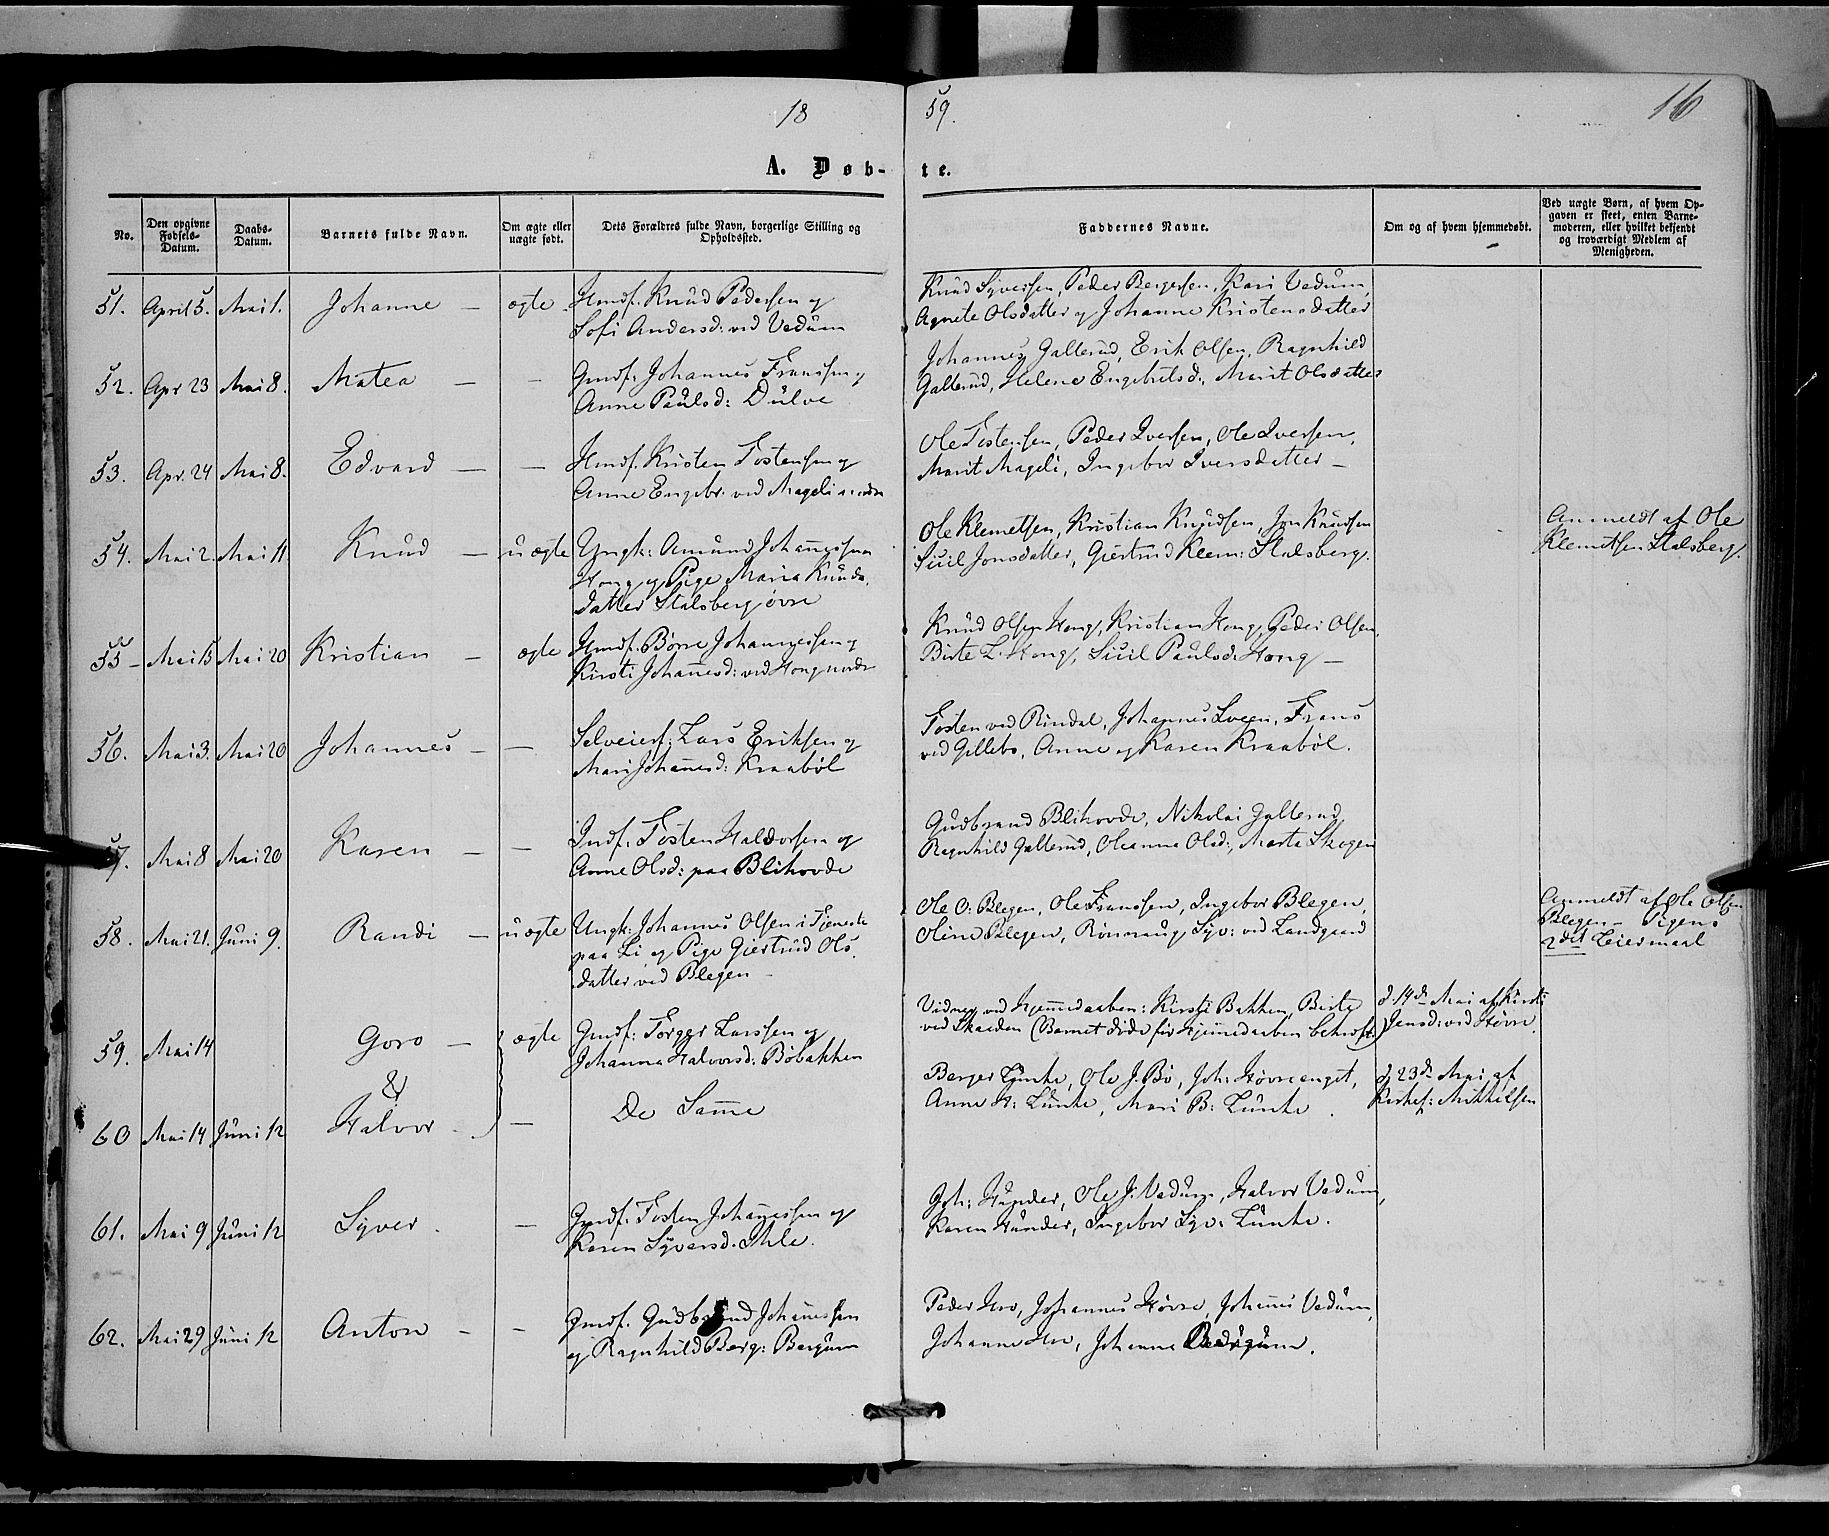 18
59.
16
A. Døb-
te.
No.
Den opgivne Fødsels-Datum.
Daabs-Datum.
Barnets fulde Navn.
Om ægte eller uægte født.
Dets Forældres fulde Navn, borgerlige Stilling og Opholdssted.
Faddernes Navne.
Om og af hvem hjemmedøbt.
Ved uægte Børn, af hvem Opgaven er skeet, enten Barnemoderen, eller hvilket bekjendt og troværdigt Medlem af Menigheden.
51. April 5. Mai 1. Johanne — ægte. Hmdf. Knud Pedersen og
Sofi Andersd: ved Vedum
Knud Syversen, Peder Bergersen, Kari Vedum,
Agnete Olsdatter og Johanne Kristensdatter
52. Apr 23 Mai 8. Matea — — Gmdf. Johannes Franssen og
Anne Paulsd: Dulve
Johannes Gallerud, Erik Olsen, Ragnhild
Gallerud, Helene Engebretsd:, Marit Olsdatter
53. Apr. 24 Mai 8. Edvard — — Hmdf. Kristen Tostensen og
Anne Engebr: ved Mageli nordre
Ole Tostensen, Peder Iversen, Ole Iversen,
Marit Mageli, Ingebor Iversdatter —
54. Mai 2. Mai 11. Knud — uægte Ungk: Amund Johannessen
Hong og Pige Maria Knuds-
datter Stalsberg øvre
Ole Klemetsen, Kristian Knudsen, Jon Knudsen
Siul Jonsdatter, Giertrud Klem: Stalsberg.
Anmeldt af Ole
Klemetsen Stalsberg.
55 — Mai 15 Mai 20 Kristian — ægte Hmdf. Børre Johannessen og
Kirsti Johannesd: ved Hong nordr
Knud Olsen Hong, Kristian Hong, Peder Olsen,
Birte L. Hong, Siul Paulsd: Hong —
56. Mai 3. Mai 20 Johannes — — Selveierf: Lars Eriksen og
Mari Johannesd: Kraabøl
Tosten ved Rindal, Johannes Sveen, Frans
ved Gillebo, Anne og Karen Kraabøl.
57. Mai 8 Mai 20 Karen — — Indf. Tosten Haldorsen og
Anne Olsd: paa Blihovde
Gudbrand Blihovde, Nikolai Gallerud,
Ragnhild Gallerud, Oleanna Olsd:, Marte Skogen
58. Mai 21. Juni 9. Randi — uægte Ungk: Johannes Olsen i Tjeneste
paa Li og Pige Giertrud Ols-
datter ved Blegen —
Ole O: Blegen, Ole Franssen, Ingebor Blegen,
Oline Blegen, Rønnaug Syv: ved Landgaard
Anmeldt af Ole Olsen
Blegen — Pigens
2det Leiermaal
59. Mai 14 Goro — ægte Gmdf: Torger Larssen og
Johanna Halvorsd: Bøbakken
Vidner ved Hjemmedaaben: Kirsti Bakken, Birte
ved Skarden (Barnet døde før Hjemmedaaben bekræft:)
d. 14de Mai af Kirsti
Jensd: ved Høvre.
&
60 Mai 14 Juni 12 Halvor — — De Samme
Berger Lunke, Ole J. Bø, Joh: Høvrenget,
Anne H: Lunke, Mari B: Lunke.
d. 23de Mai af
Kirkef: Mikkelsen
61. Mai 9 Juni 12 Syver. — Gmdf. Tosten Johannessen og
Karen Syversd. Ihle.
Joh: Hunder, Ole J. Vedum, Halvor Vedum,
Karen Hunder, Ingebor Syv: Lunke.
62. Mai 29 Juni 12 Anton — — Gmdf. Gudbrand Johannessen
og Ragnhild Berg: Bergum
Peder Mo, Johannes Høvre, Johannes Vedum,
Johanne Mo, Johanna Bergum.